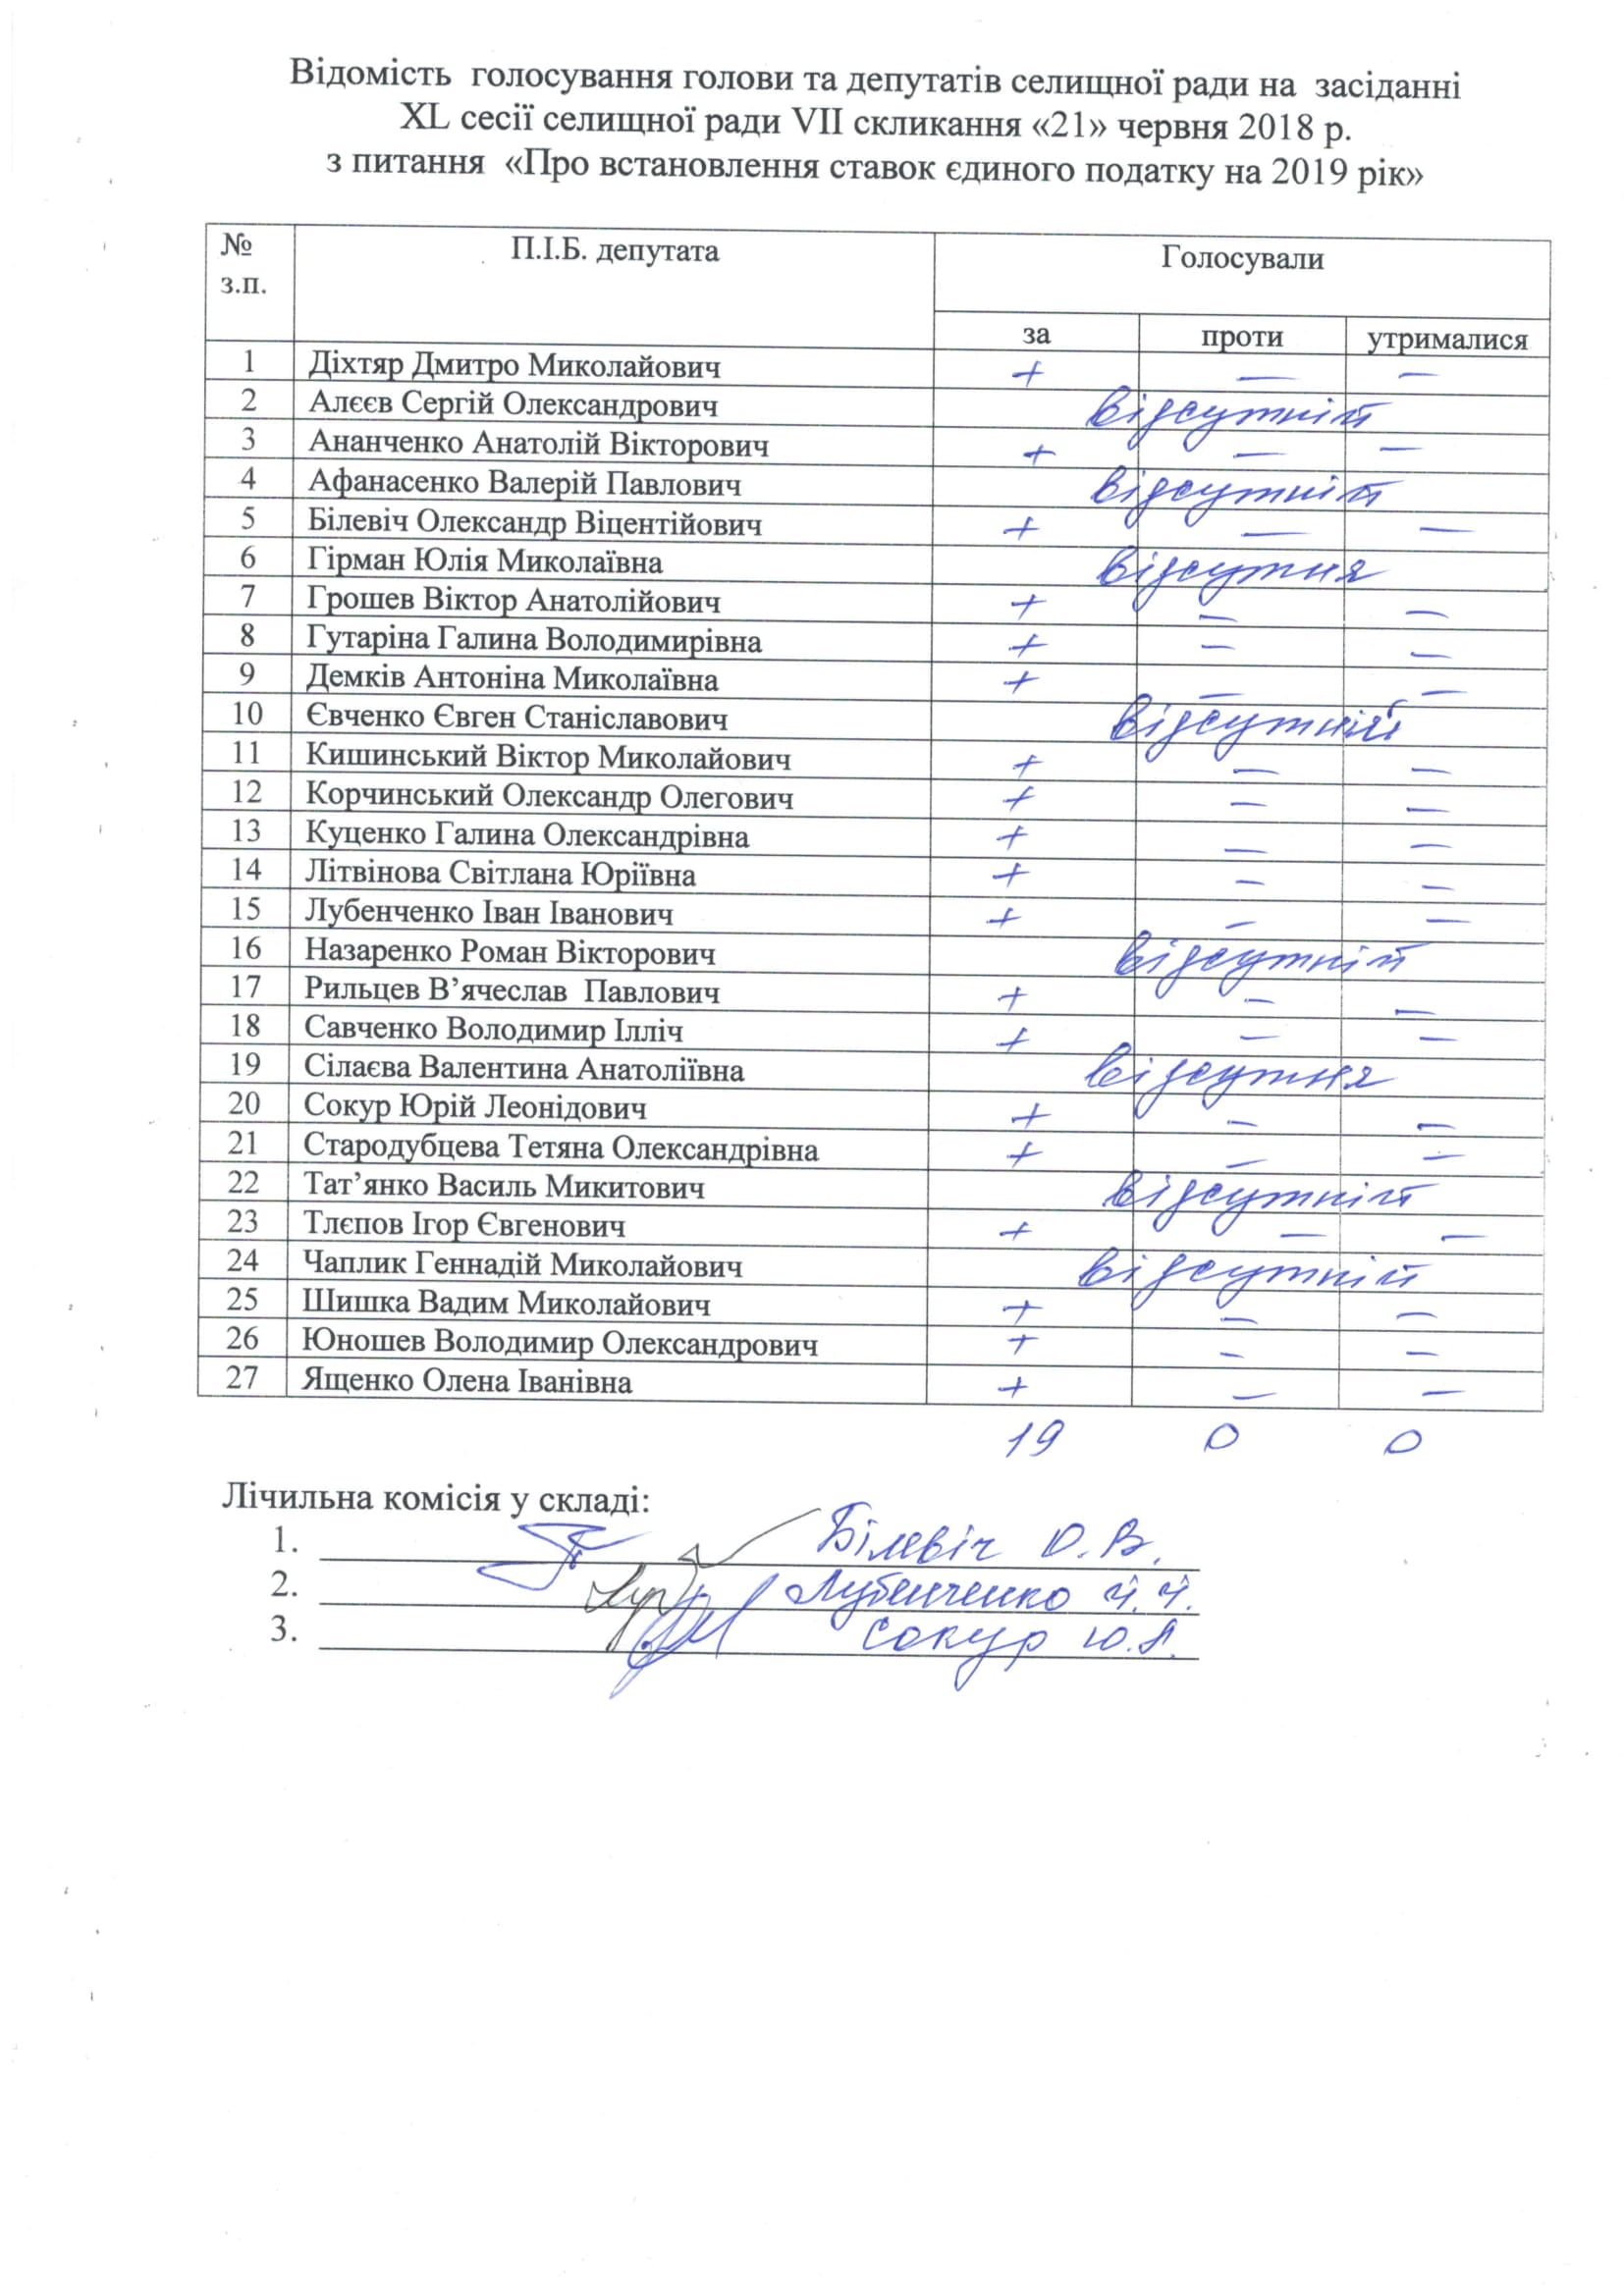 Відомість голосування голови та депутатів селищної ради на засіданні
XL сесії селищної ради VII скликання «21» червня 2018 р.
з питання «Про встановлення ставок єдиного податку на 2019 рік»
№ з.п. П.І.Б. депутата Голосували
за проти утрималися
1 Діхтяр Дмитро Миколайович + — —
2 Алєєв Сергій Олександрович відсутній
3 Ананченко Анатолій Вікторович + — —
4 Афанасенко Валерій Павлович відсутній
5 Білевіч Олександр Віцентійович + — —
6 Гірман Юлія Миколаївна відсутня
7 Грошев Віктор Анатолійович + — —
8 Гутаріна Галина Володимирівна + — —
9 Демків Антоніна Миколаївна + — —
10 Євченко Євген Станіславович відсутній
11 Кишинський Віктор Миколайович + — —
12 Корчинський Олександр Олегович + — —
13 Куценко Галина Олександрівна + — —
14 Літвінова Світлана Юріївна + — —
15 Лубенченко Іван Іванович + — —
16 Назаренко Роман Вікторович відсутній
17 Рильцев В’ячеслав Павлович + — —
18 Савченко Володимир Ілліч + — —
19 Сілаєва Валентина Анатоліївна відсутня
20 Сокур Юрій Леонідович + — —
21 Стародубцева Тетяна Олександрівна + — —
22 Тат’янко Василь Микитович відсутній
23 Тлєпов Ігор Євгенович + — —
24 Чаплик Геннадій Миколайович відсутній
25 Шишка Вадим Миколайович + — —
26 Юношев Володимир Олександрович + — —
27 Ященко Олена Іванівна + — —
19 0 0
Лічильна комісія у складі:
1. Білевіч О.В.
2. Лубенченко І.І.
3. Сокур Ю.Л.